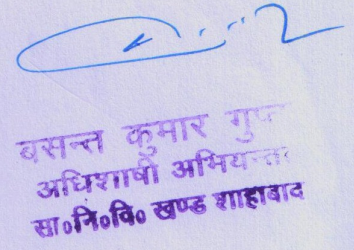 बसन्त कुमार गुप्त
अधिशाषी अभियन्ता
सा०नि०वि० खण्ड शाहाबाद